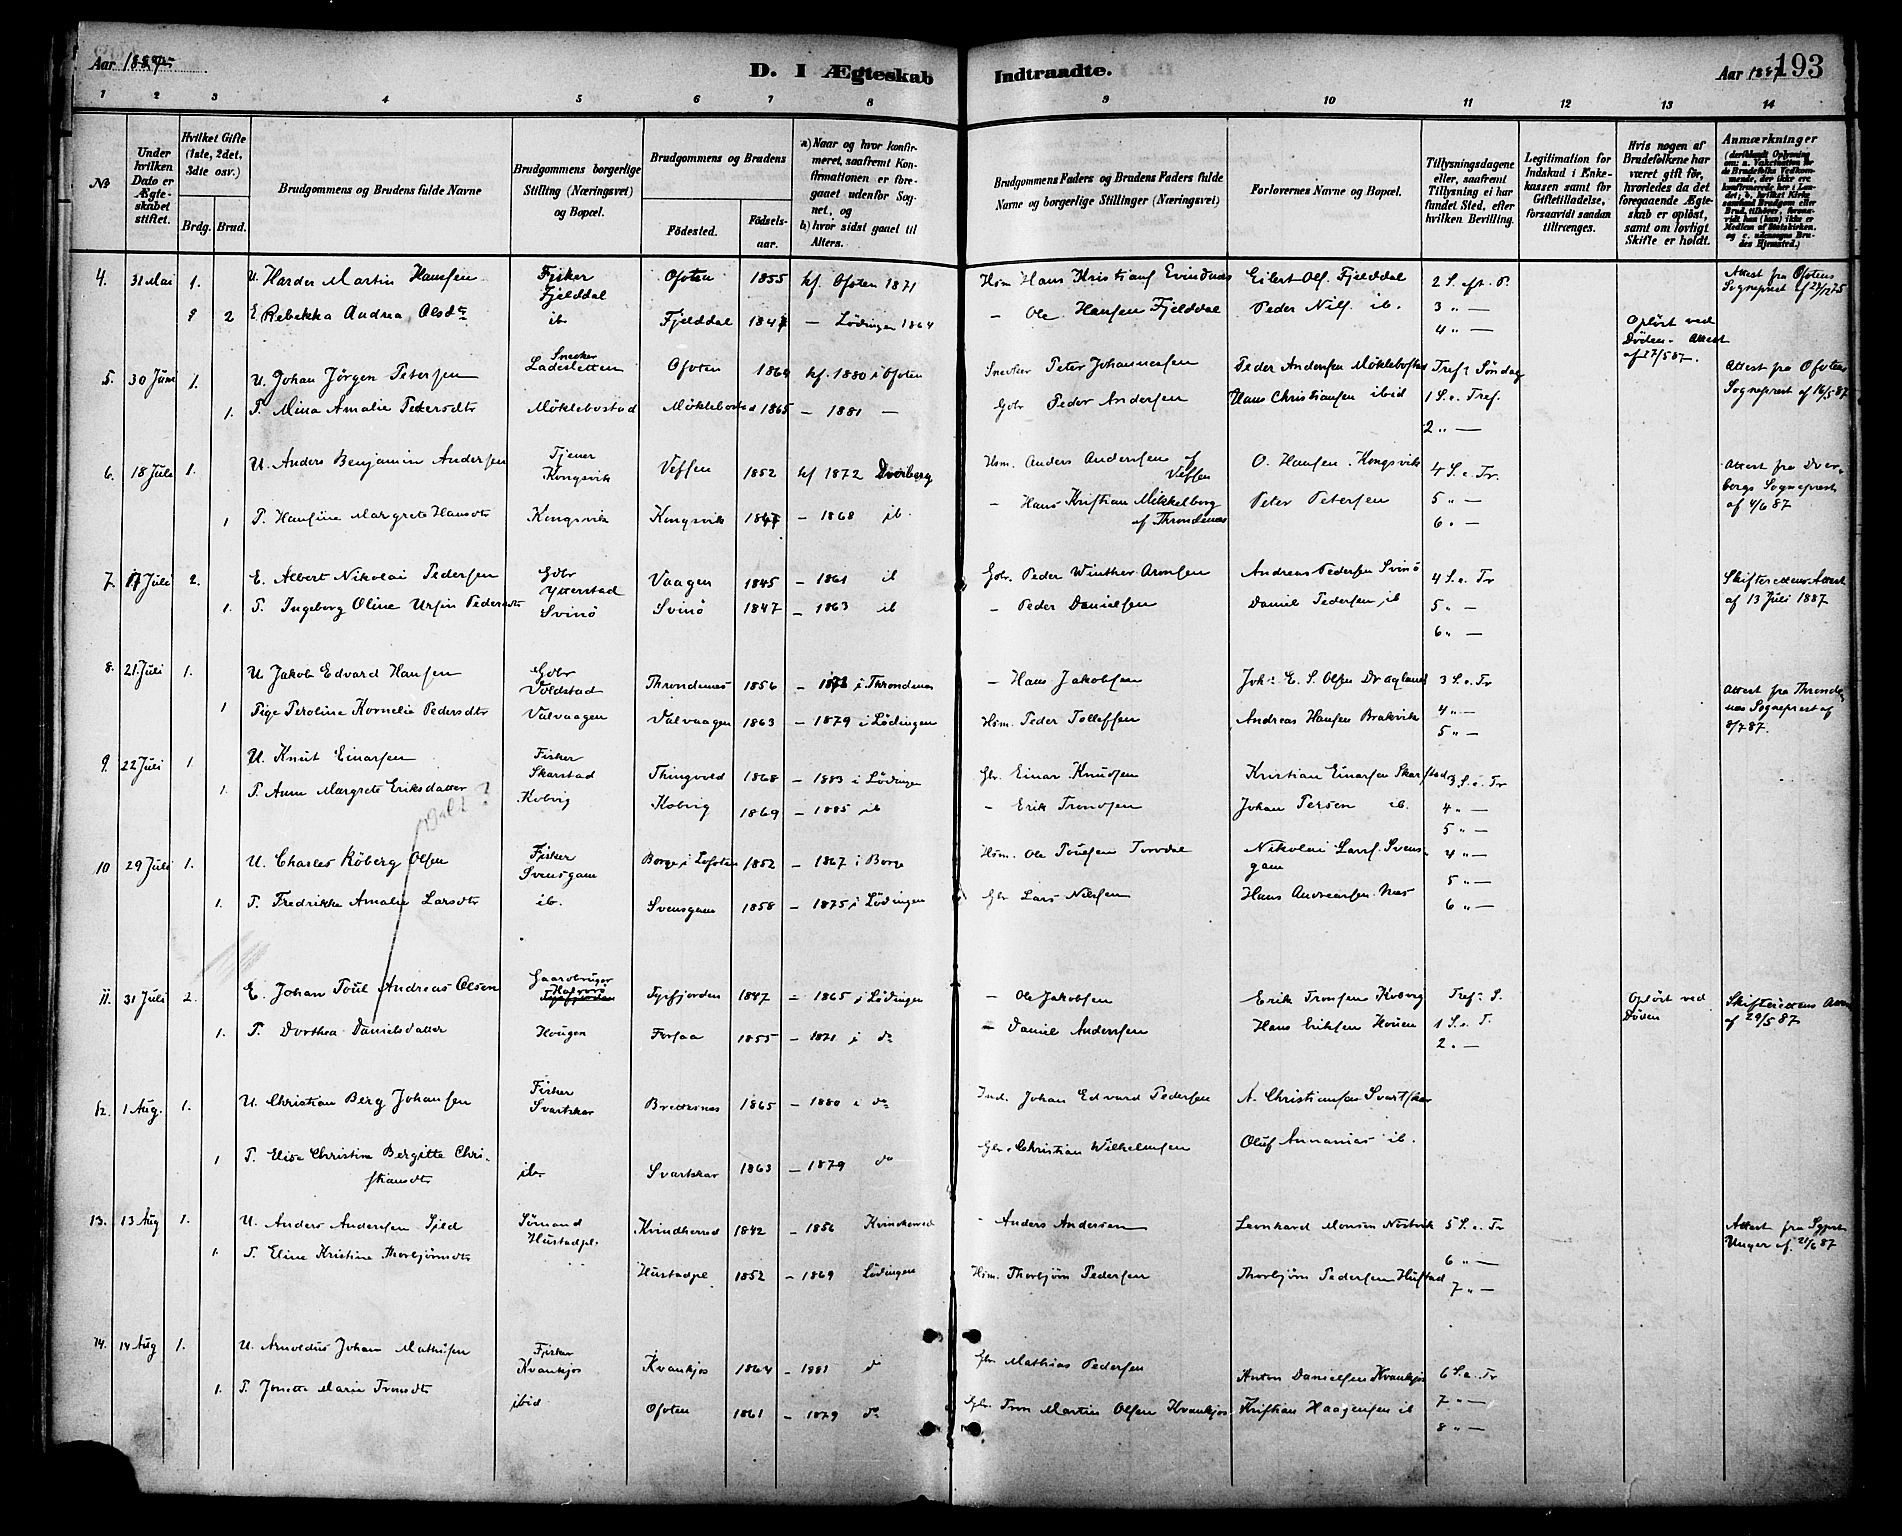 Aar 1887
D. I Ægteskab Indtraadte.
Aar 1887
193
1 2 3 4 5 6 7 8 9 10 11 12 13 14
№
Under hvilken Dato er Ægteskabet stiftet.
Hvilket Gifte (1ste, 2det, 3die osv.)
Brdg. Brud.
Brudgommens og Brudens fulde Navne
Brudgommens borgerlige Stilling (Næringsvei) og Bopæl.
Brudgommens og Brudens
Födested.
Födsels-aar.
a) Naar og hvor konfirmeret, saafremt Konfirmationen er foregaaet udenfor Sognet, og
b) hvor sidst gaaet til Alters.
Brudgommens Faders og Brudens Faders fulde Navne og borgerlige Stillinger (Næringsvei)
Forlovernes Navne og Bopæl.
Tillysningsdagene eller, saafremt Tillysning ei har fundet Sted, efter hvilken Bevilling.
Legitimation for Indskud i Enkekassen samt for Giftetilladelse, forsaavidt saadan tiltrænges.
Hvis nogen af Brudefolkene har været gift før, hvorledes da det foregaaende Ægteskab er oplöst, samt om lovligt Skifte er holdt.
Anmærkninger
4. 31 Mai 1. U. Harder Martin Hansen Fisker Fjelddal Ofoten 1855 kf. Ofoten 1871 Hsm Hans Kristians Evindnes Eilert Ols. Fjelddal 2 S. eft. P. Attest fra Ofotens Sogneprest
2 E. Rebekka Andrea Olsdtr ib Fjelddal 1847 — Lödingen 1864 — Ole Hansen Fjelddal Peder Nils. ib. 3 " — 4 " — Oplöst ved Döden. Attest af 27/5 87.
5. 30 Juni 1. U. Johan Jörgen Petersen Snecker Ladesletten Ofoten 1860 kf. 1880 i Ofoten Snecker Peter Johannesen Peder Andersen Möklebostad Tref. Söndag Attest fra Ofotens Sogneprest af 16/5 87
1. P. Mina Amalie Pedersdtr Möklebostad Möklebostad 1865 — 1881 — Gbr Peder Andersen Hans Christiansen ibid 1 S. e. Tref. 2 " —
6. 18 Juli 1. U. Anders Benjamin Andersen Tjener Kongsvik Vefsen 1852 kf 1872 Dverberg Hsm. Anders Andersen af Vefsen O. Hansen Kongsvik 4 S. e. Tr. Attest fra Dverbergs Sogneprest af 4/6 87
1 P. Hansine Margrete Hansdtr Kongsvik Kongsvik 1847 — 1868 ib. — Hans Kristian Mikkelborg af Throndenæs Peter Petersen 5 " — 6 " —
7. 17 Juli 2. E. Albert Nikolai Pedersen Gbr Ytterstad Vaagen 1845 — 1861 ib Gbr. Peder Winther Aronsen Andreas Pedersen Svinö 4 S. e. Tr Skifterettens Attest af 13 Juli 1887
1. P. Ingeborg Oline Ursin Pedersdtr Svinö Svinö 1847 — 1863 ib — Peder Danielsen Daniel Pedersen ib 5 " — 6 " —
8. 21 Juli 1. U. Jakob Edvard Hansen Gbr Voldstad Throndenes 1856 — 1873 i Throndenes — Hans Jakobsen Joh. E. S. Olsen Dragland 3 S. e. Tr Attest fra Throndenes Sogneprest af 8/7 87.
1 Pige Peroline Kornelia Pedersdtr Valvaagen Valvaagen 1863 — 1879 i Lödingen Hsm. Peder Tollefsen Andreas Hansen Brakvik 4 " — 5 " —
9. 22 Juli 1. U. Knut Einarsen Fisker Skarstad Thingvold 1868 — 1883 i Lödingen Gbr. Einar Knudsen Kristian Einarsen Skarstad 3 S. e. Tr
1. P. Anne Margrete Eriksdatter Kobvig Kobvig 1869 — 1885 ib — Erik Tronsen Johan Persen ib. 4 " — 5 " —
Dalt ?
10 29 Juli 1. U. Charles Röberg Olsen Fisker Svensgam Borge i Lofoten 1852 — 1867 i Borge Hsm. Ole Poulsen Torvdal Nikolai Lars. Svensgam 4 " —
1. P. Fredrikke Amalie Larsdtr ib. Svensgam 1858 — 1875 i Lödingen Gbr Lars Nilsen Hans Andreassen Næs 5 " — 6 " —
11. 31 Juli 2. E. Johan Poul Andreas Olsen Gaardbruger Tysfjorden 1847 — 1865 i Lödingen — Ole Jakobsen Erik Tronsen Kobvig Tref. S. Oplöst ved Döden Skifterettens Attest af 29/5 87
1. P. Dorthea Danielsdatter Hougen Forsaa 1855 — 1871 i do — Daniel Andersen Hans Eriksen Houen 1 S. e. T. 2 " —
12. 1 Aug. 1. U. Christian Berg Johansen Fisker Svartskar Bredesnes 1865 — 1880 i do Ind. Johan Edvard Pedersen A. Christiansen Svartskar
1 P. Elise Christine Bergitte Christiansdtr ibr Svartskar 1863 — 1879 do Gbr. Christian Wilhelmsen Oluf Annanias ib.
13. 13 Aug 1. U. Anders Andersen Sjild Sömand Hustadpl. Kvindherred 1842 — 1856 Kvindherred — Anders Andersen Leonhard Monsen Nestvik 5 S. e. Tr Attest fra Sgprst. Unger af 21/6 87
1. P. Eline Kristine Thorbjörnsdtr Hustadpl 1852 — 1869 Lödingen Hsm. Thorbjörn Pedersen Thorbjörn Pedersen Hustad 6 " — 7 " —
14. 14 Aug 1. U. Arnoldus Johan Mathisen Fisker Kvankjos Kvankjos 1864 — 1881 d Gbr Mathias Pedersen Anton Danielsen Kvankjos 6 S. e. Tr
1. P. Jonette Marie Tronsdtr ibid Ofoten 1861 — 1879 do Gbr. Tron Martin Olsen Kvankjos Kristian Haagensen ib 7 " — 8 " —